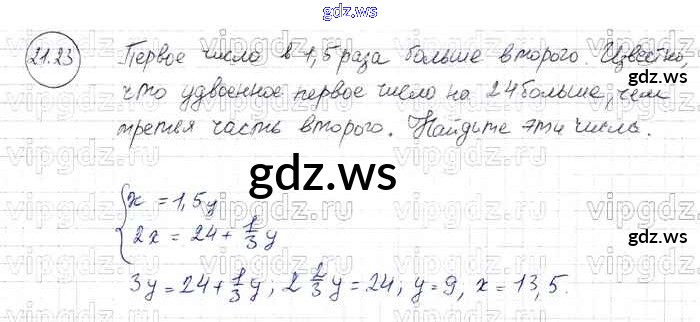 gdz.ws
21.23
Первое число в 1,5 раза больше второго. Известно,
что удвоенное первое число на 24 больше, чем
третья часть второго. Найдите эти числа.
gdz.ws
{x = 1,5y
2x = 24 + 1/3 y
3y = 24 + 1/3 y; 2 2/3 y = 24; y = 9, x = 13,5.
gdz.ws